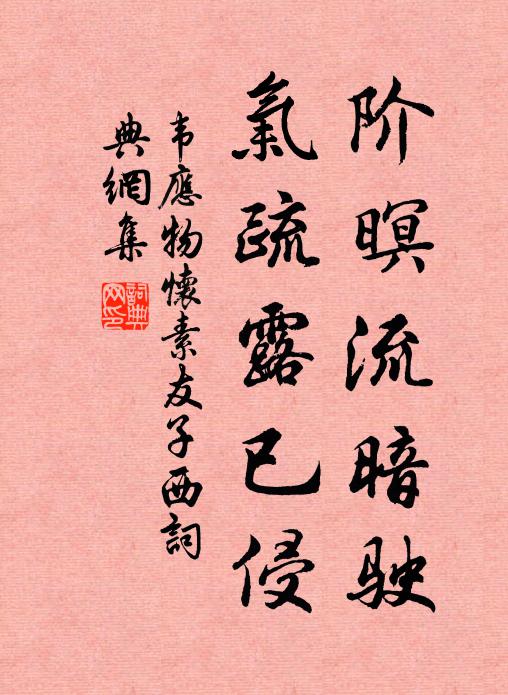 阶暝流暗驶
氣疏露已侵
韦應物懷素友子西詞
典網集
詞典網印